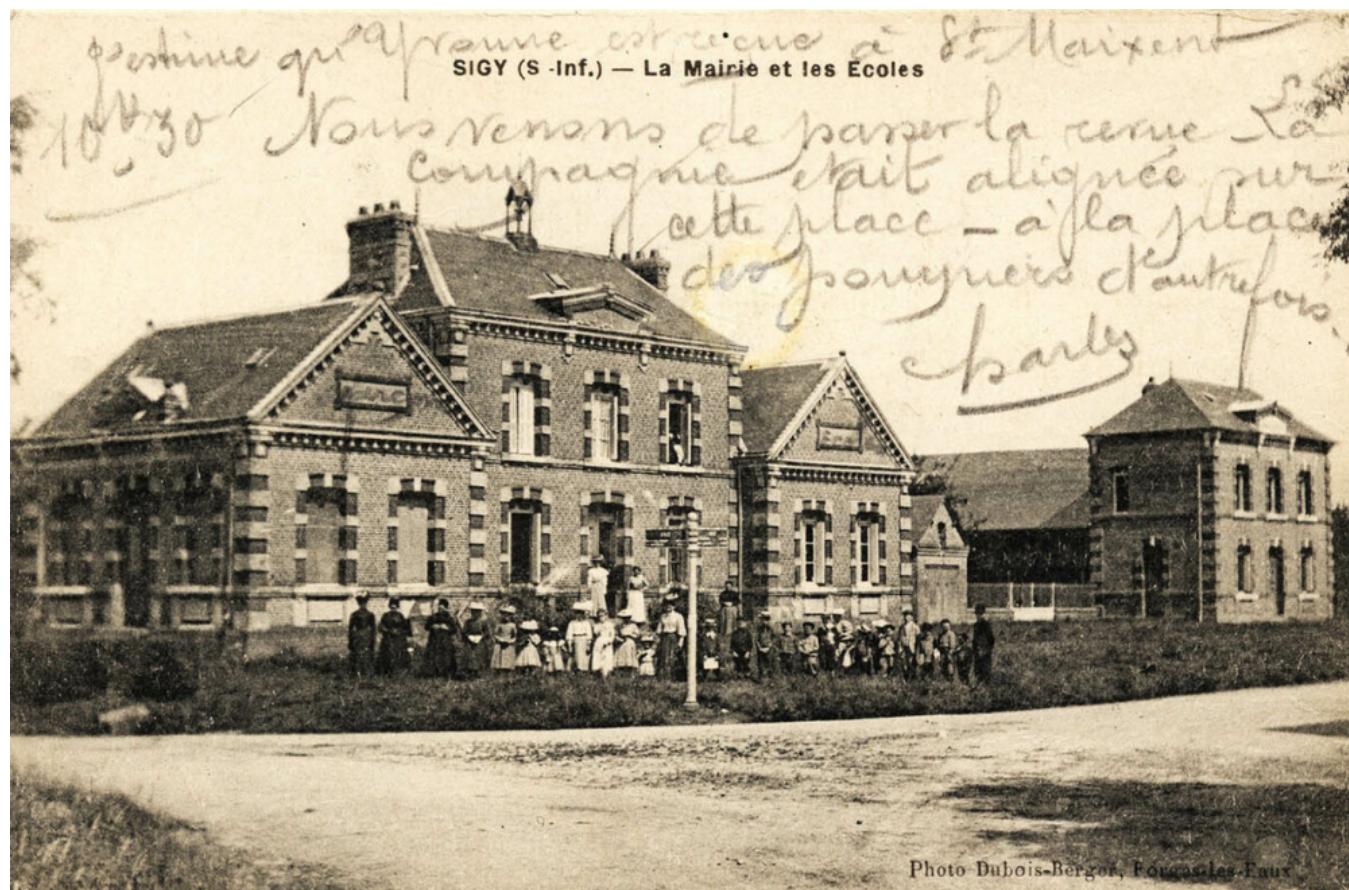 J'estime qu'Yvonne est reçue à St Maixent
SIGY (S-Inf.) — La Mairie et les Ecoles
10h30 Nous venons de passer la revue La
Compagnie était alignée sur
cette place — à la place
des pompiers d'autrefois.
Charles
Photo Dubois-Berger, Forges-les-Eaux